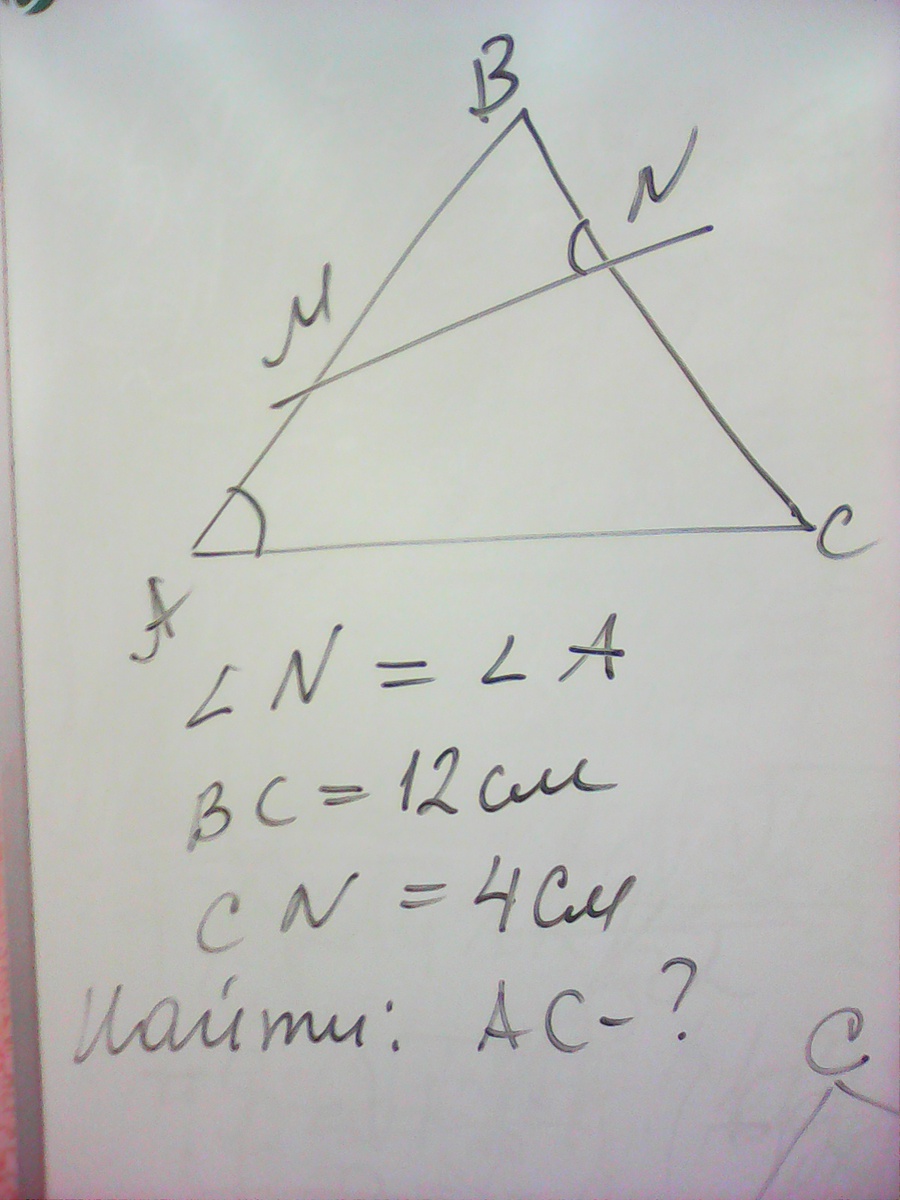 B
N
M
A
C
∠ N = ∠ A
BC = 12 см
CN = 4 см
Найти: AC - ?
C